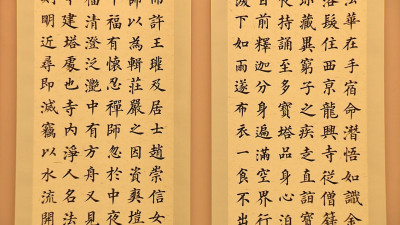 法華在手宿命潛悟如識金
落髮住西京龍興寺從僧籙
珎藏異窮子之疾走直詣寶
夜持誦至多寶塔品身心泊
目前釋迦分身遍滿空界行
淚下如雨遂布衣一食不出
而許王瓘及居士趙崇信女
師以為輯莊嚴之因資爽塏
千福有懷忍禪師忽於中夜
福清澄泛灔中有方舟又見
今建塔處也寺內淨人名法
則明近尋即滅竊以水流開